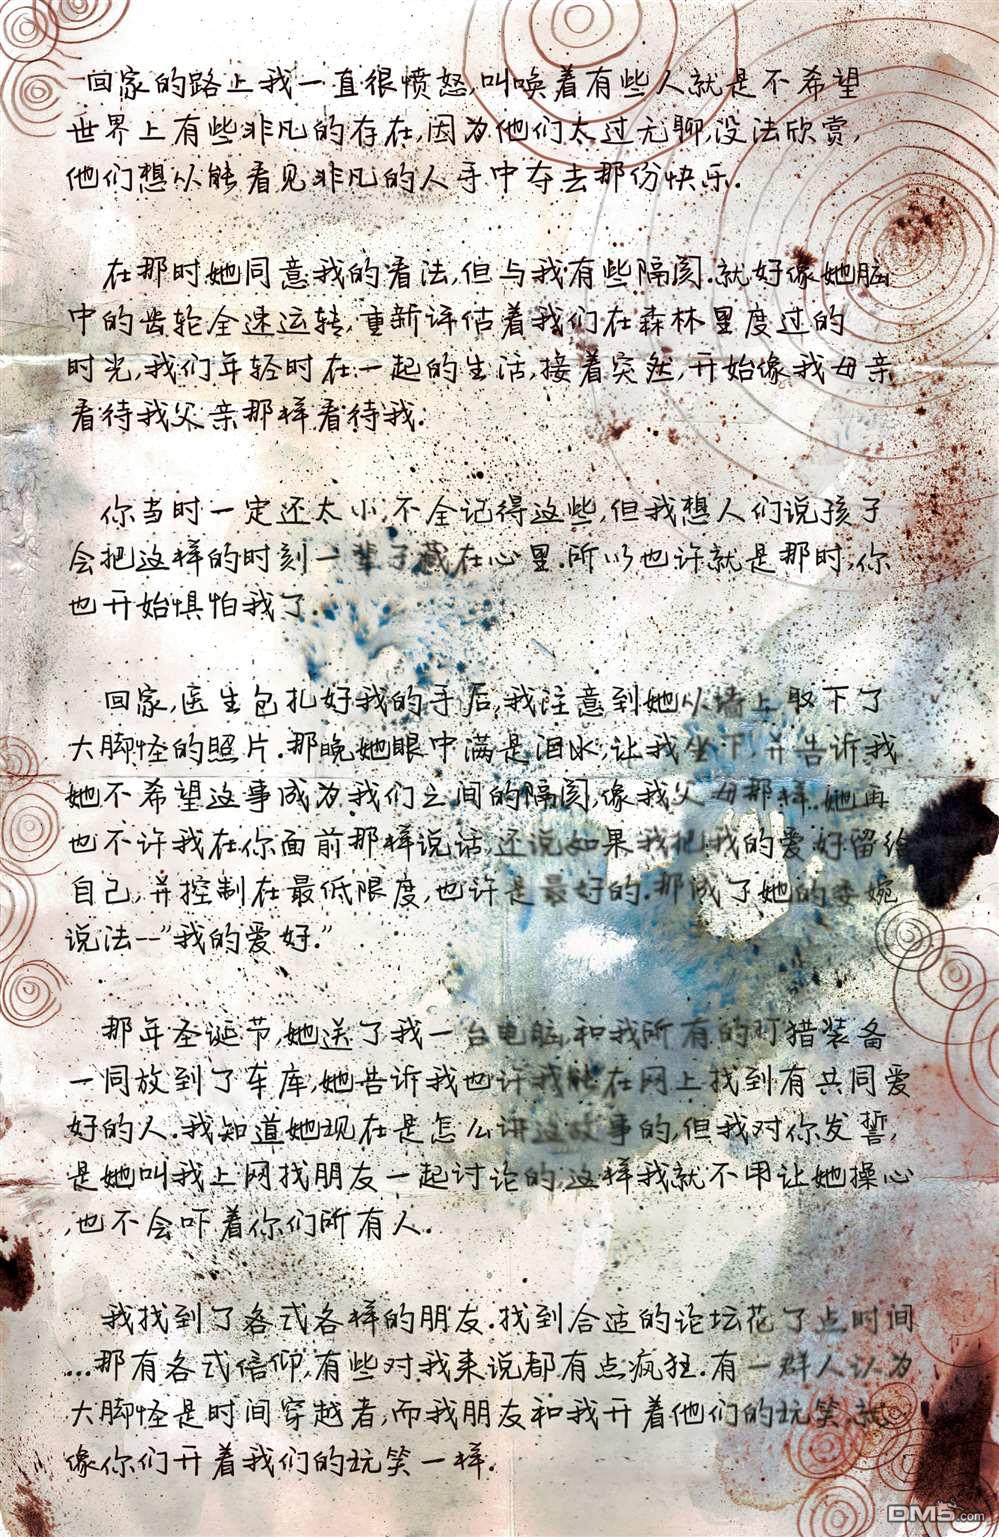 回家的路上我一直很愤怒,叫唤着有些人就是不希望
世界上有些非凡的存在,因为他们太过无聊,没法欣赏,
他们想从能看见非凡的人手中夺去那份快乐.
在那时她同意我的看法,但与我有些隔阂.就好像她脑
中的齿轮全速运转,重新评估着我们在森林里度过的
时光,我们年轻时在一起的生活,接着突然,开始像我母亲
看待我父亲那样看待我.
你当时一定还太小,不全记得这些,但我想人们说孩子
会把这样的时刻一辈子藏在心里.所以也许就是那时,你
也开始惧怕我了.
回家,医生包扎好我的手后,我注意到她从墙上取下了
大脚怪的照片.那晚她眼中满是泪水,让我坐下,并告诉我
她不希望这事成为我们之间的隔阂,像我父母那样.她再
也不许我在你面前那样说话,还说如果我把我的爱好留给
自己,并控制在最低限度,也许是最好的.那成了她的委婉
说法--"我的爱好."
那年圣诞节,她送了我一台电脑,和我所有的打猎装备
一同放到了车库,她告诉我也许我能在网上找到有共同爱
好的人.我知道她现在是怎么讲这故事的,但我对你发誓,
是她叫我上网找朋友一起讨论的,这样我就不用让她操心
,也不会吓着你们所有人.
我找到了各式各样的朋友.找到合适的论坛花了点时间
...那有各式信仰,有些对我来说都有点疯狂.有一群人认为
大脚怪是时间穿越者,而我朋友和我开着他们的玩笑,就
像你们开着我们的玩笑一样.
DM5.com